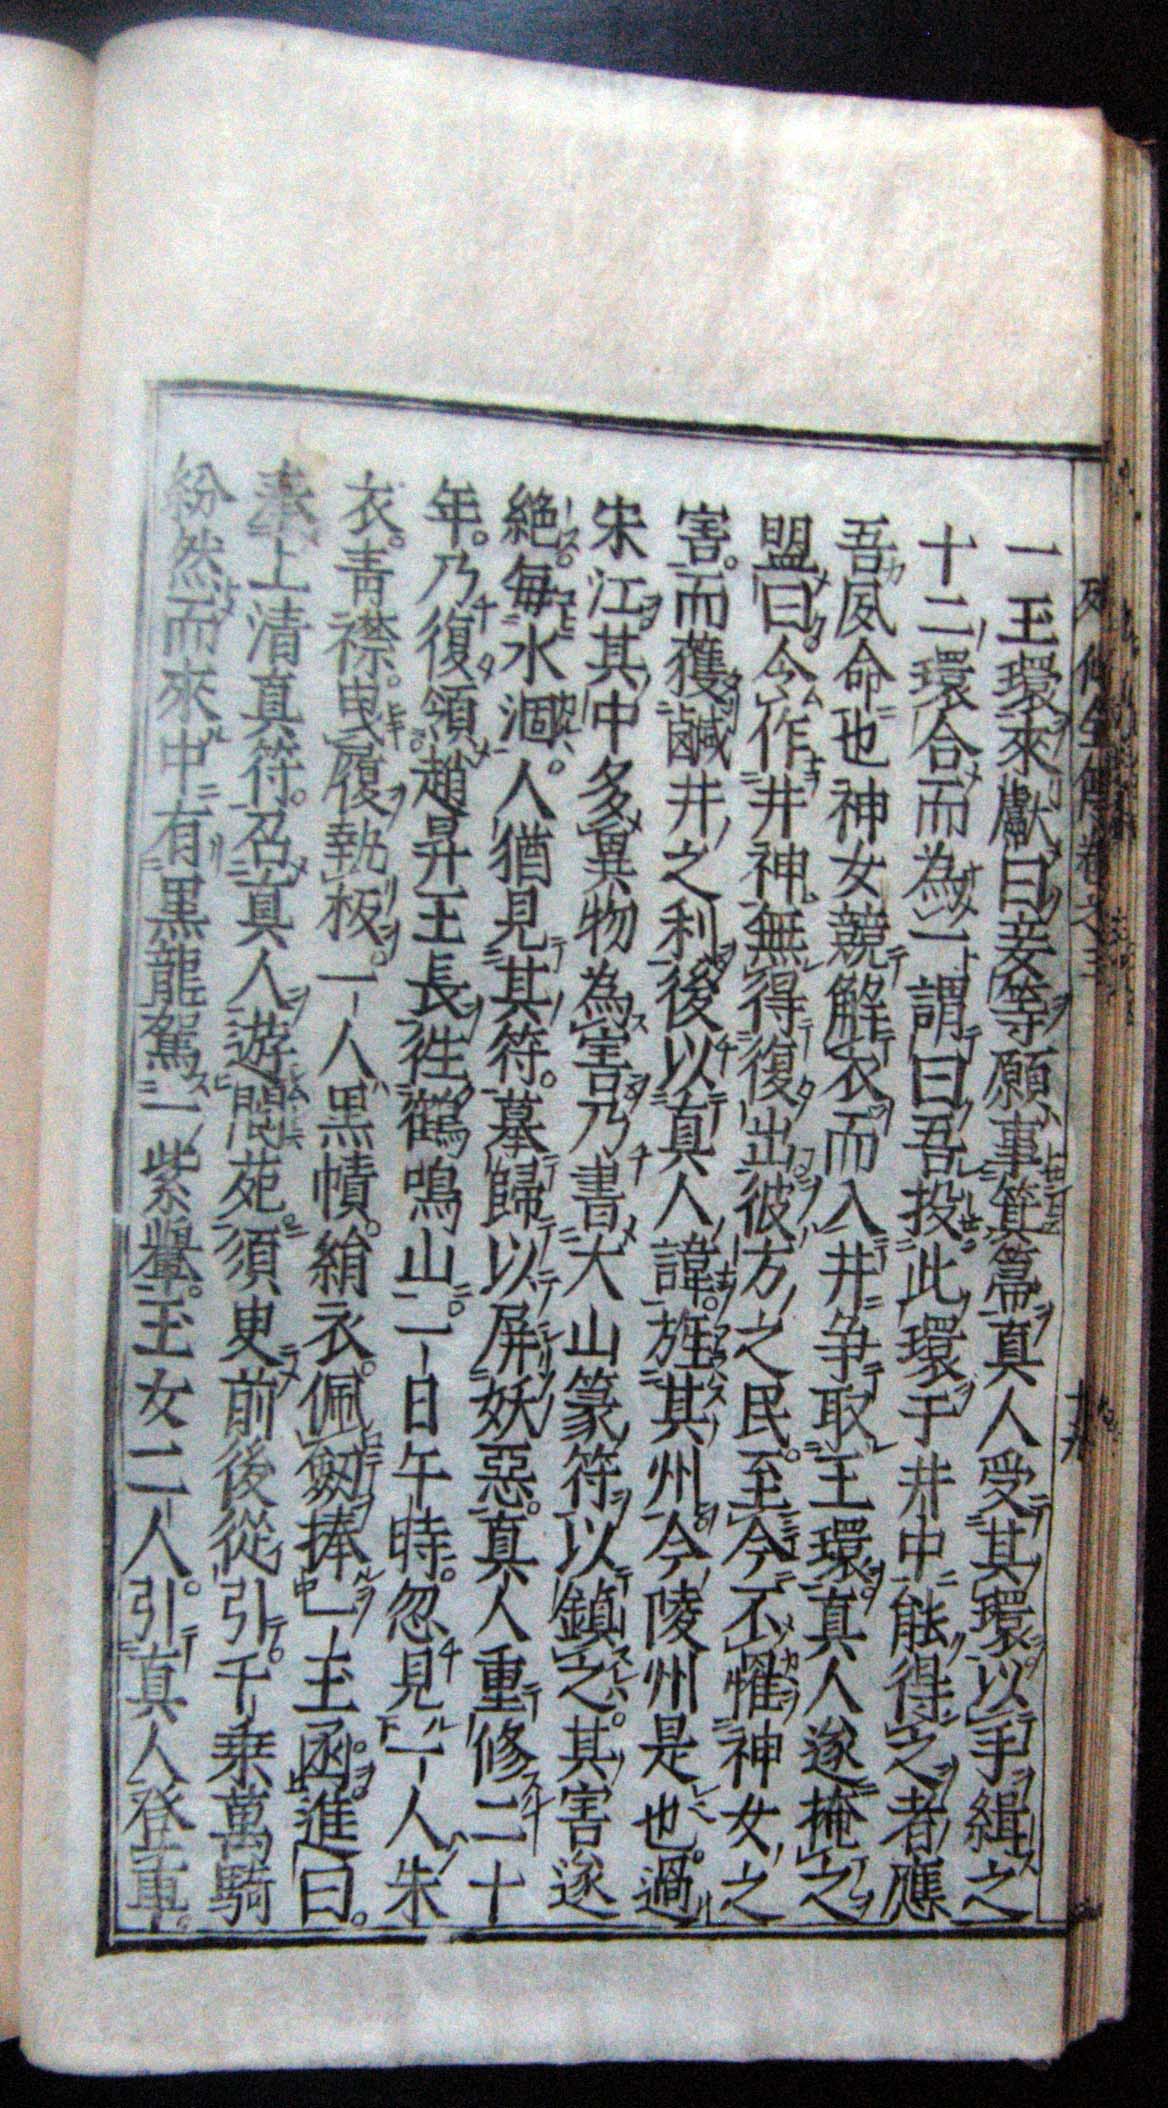 一玉環來獻曰妾等願事箕箒真人受其環以手緝之
十二環合而為一謂曰吾投此環于井中能得之者應
吾夙命也神女競解衣而入井争取玉環真人遂掩之
盟曰令作井神無得復出彼方之民至今不罹神女之
害。而獲鹹井之利後以真人諱。旌其州今陵州是也。過
宋江其中多異物為害乃書大山篆符以鎮之。其害遂
絶。每水涸。人猶見其符。墓歸以屏妖惡。真人重修二十
年。乃復領趙昇王長往鶴鳴山。一日午時。忽見一人朱
衣。青襟。曳履執板。一人黒幘。絹衣。佩劔捧一玉函。進曰。
奉上清真符。召真人遊閬苑。須臾前後從引。千乗萬騎
紛然而來中有黒龍駕一紫轝。玉女二人。引真人登車。